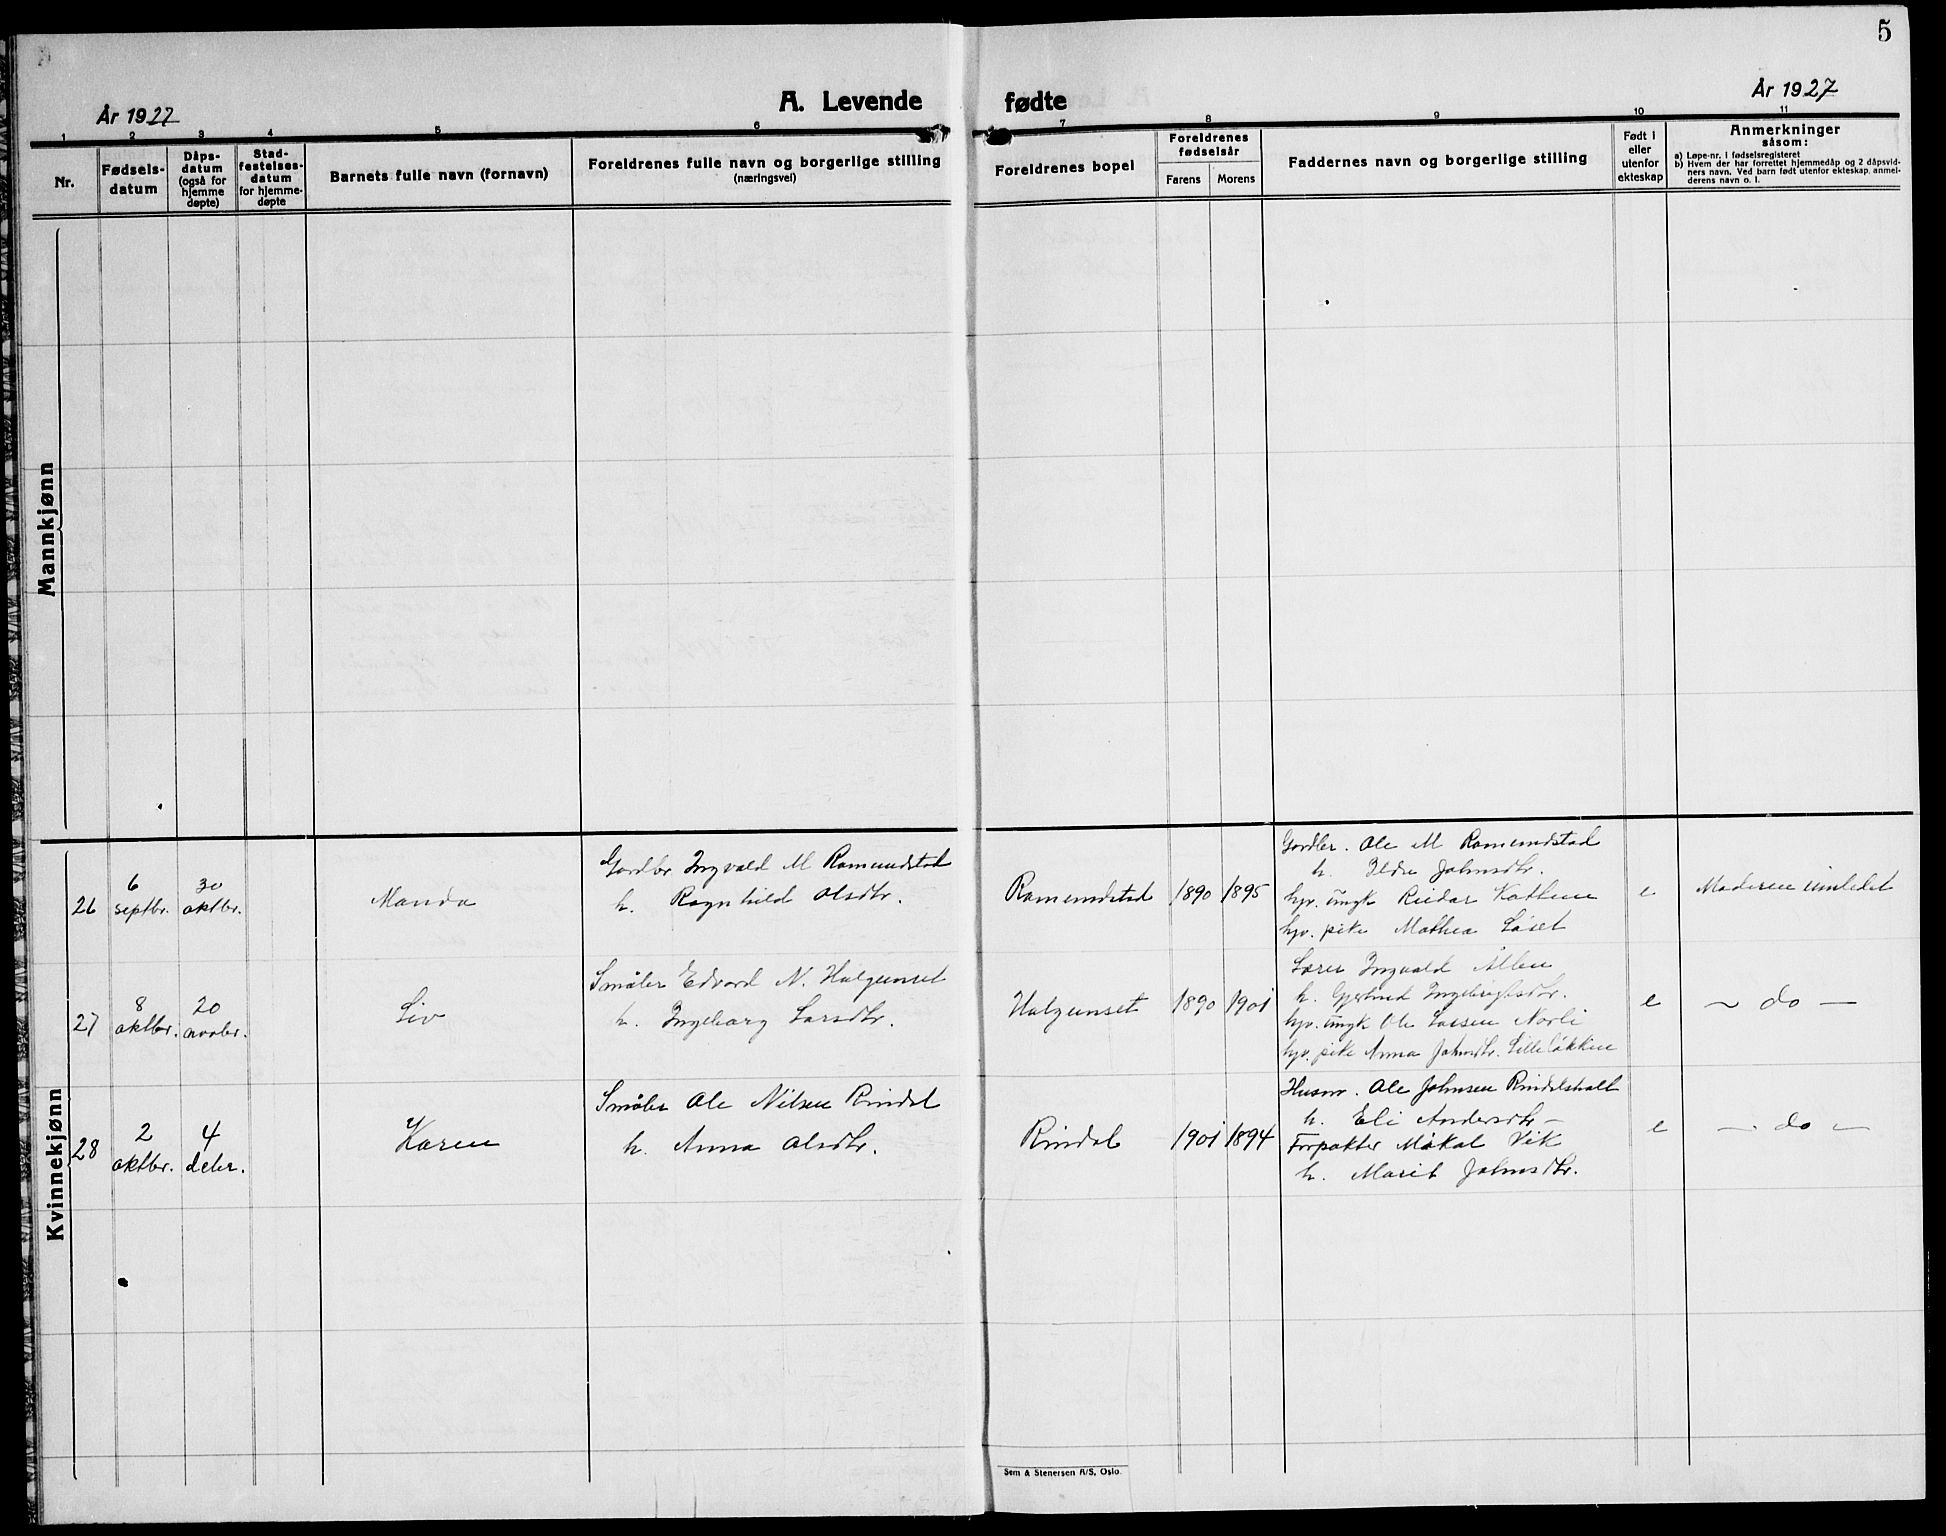 5
År 1927
A. Levende
fødte
År 1927
1 2 3 4 5 6 7 8 9 10 11
Nr.
Fødsels-
datum
Dåps-
datum
(også for
hjemme
døpte)
Stad-
festelses-
datum
for hjemme-
døpte
Barnets fulle navn (fornavn)
Foreldrenes fulle navn og borgerlige stilling
(næringsvei)
Foreldrenes bopel
Foreldrenes
fødselsår
Farens Morens
Faddernes navn og borgerlige stilling
Født i
eller
utenfor
ekteskap
Anmerkninger
såsom:
a) Løpe-nr. i fødselsregisteret
b) Hvem der har forrettet hjemmedåp og 2 dåpsvid-
ners navn. Ved barn født utenfor ekteskap, anmel-
derens navn o. l.
Mannkjønn
Kvinnekjønn
26
6
septbr.
30
oktbr.
Manda
Gardbr Ingvald M Romundstad
h. Ragnhild Olsdtr.
Romundstad
1890 1895
Gardbr. Ole M Romundstad
h. Ildri Johnsdtr.
hjv. ungk Reidar
hjv. pike Mathea Løset
e
Moderen innledet
27
8
oktbr.
20
novbr.
Liv
Småbr Edvard N. Halgunset
h. Ingeborg Larsdtr.
Halgunset
1890 1901
Lærer Ingvald
h. Gjertrud Ingebrigtsdtr.
hjv. ungk Ole Larsen Norli
hjv. pike Anna Johnsdtr. Lilleløkken
e
— do —
28
2
oktbr.
4
debr.
Karen
Småbr Ole Nilsen Rindal
h. Anna Olsdtr.
Rindal
1901 1894
Husm. Ole Johnsen Rindalshalt
h. Eli Andersdtr —
Forpakter Mikal Vik
h. Marit Johnsdtr.
e
— do —
Sem & Stenersen A/S, Oslo.